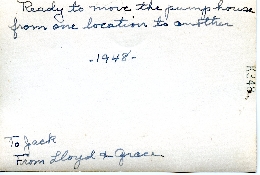 Ready to move the pump house
from one location to another
-1948-
To Jack
From Lloyd & Grace